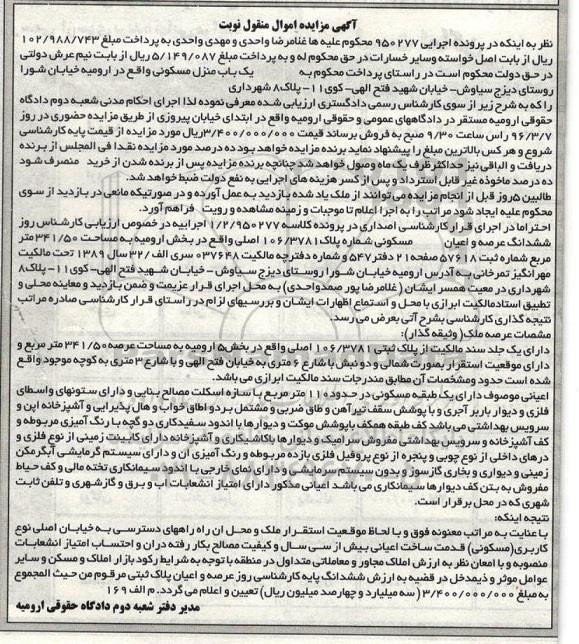 آگهی مزایده اموال منقول نوبت
نظر به اینکه در پرونده اجرایی ۹۵۰۲۷۷ محکوم علیه ها غلامرضا واحدی و مهدی واحدی به پرداخت مبلغ ۱۰۲/۹۸۸/۷۴۳
ریال از بابت اصل خواسته وسایر خسارات در حق محکوم له و به پرداخت مبلغ ۵/۱۴۹/۰۸۷ ریال از بابت نیم عرش دولتی
در حق دولت محکوم است در راستای پرداخت محکوم به یک باب منزل مسکونی واقع در ارومیه خیابان شورا
روستای دیزج سیاوش- خیابان شهید فتح الهی-کوی۱۱- پلاک۸ شهرداری
را که به شرح زیر از سوی کارشناس رسمی دادگستری ارزیابی شده معرفی نموده لذا اجرای احکام مدنی شعبه دوم دادگاه
حقوقی ارومیه مستقر در دادگاههای عمومی و حقوقی ارومیه واقع در ابتدای خیابان پیروزی از طریق مزایده حضوری در روز
۹۶/۳/۷ راس ساعت ۹/۳۰ صبح به فروش برساند قیمت ۳/۴۰۰/۰۰۰/۰۰۰ریال مورد مزایده از قیمت پایه کارشناسی
شروع و هر کس بالاترین مبلغ را پیشنهاد نماید برنده مزایده خواهد بود ده درصد مورد مزایده نقدا فی المجلس از برنده
دریافت و الباقی نیز حداکثر ظرف یک ماه وصول خواهد شد چنانچه برنده مزایده پس از برنده شدن از خرید منصرف شود
ده درصد ماخوذه غیر قابل استرداد و پس از کسر هزینه های اجرایی به نفع دولت ضبط خواهد شد.
طالبین ۵روز قبل از انجام مزایده می توانند از ملک یاد شده بازدید به عمل آورده و در صورتیکه مانعی در بازدید از سوی
محکوم علیه ایجاد شود مراتب را به اجرا اعلام تا موجبات و زمینه مشاهده و رویت فراهم آورد.
احتراما در اجرای قرار کارشناسی اصداری در پرونده کلاسه ۱/۲/۹۵۰۲۷۷ اجراییه در خصوص ارزیابی کارشناس روز
ششدانگ عرصه و اعیان مسکونی شماره پلاک۱۰۶/۳۷۸۱ اصلی واقع در بخش ارومیه به مساحت ۳۴۱/۵۰ متر
مربع شماره ثبت ۵۷۶۱۸ صفحه۲۱ دفتر۵۴۷ و شماره دفترچه مالکیت ۰۳۷۶۴۸ سری الف ۳۲/ سال ۱۳۸۹ تحت مالکیت
مهرانگیز تمرخانی به آدرس ارومیه خیابان شورا روستای دیزج سیاوش - خیابان شهید فتح الهی- کوی۱۱- پلاک۸
شهرداری در معیت همسر ایشان ( غلامرضا پور صمدواحدی) به محل اجرای قرار عزیمت و ضمن بازدید و معاینه محلی و
تطبیق اسنادمالکیت ابرازی با محل و استماع اظهارات ایشان و بررسیهای لازم در راستای قرار کارشناسی صادره مراتب
نتیجه گذاری کارشناسی بشرح آتی بعرض می رسد.
مشخصات عرصه ملک( وثیقه گذار):
دارای یک جلد سند مالکیت از پلاک ثبتی ۱۰۶/۳۷۸۱ اصلی واقع در بخش۵ ارومیه به مساحت عرصه ۳۴۱/۵۰ متر مربع و
دارای موقعیت استقرار بصورت شمالی و دو نبش با شارع ۶ متری به خیابان فتح الهی و با شارع ۳ متری به کوچه موجود واقع
شده است حدود ومشخصات آن مطابق مندرجات سند مالکیت ابرازی می باشد.
اعیانی موصوف دارای یک طبقه مسکونی در حدود۱۱۰ متر مربع با سازه اسکلت مصالح بنایی و دارای ستونهای واسطای
فلزی و دیوار باربر آجری و با پوشش سقف تیرآهن و طاق ضربی و مشتمل بر دو اطاق خواب و هال پذیرایی و آشپزخانه اپن و
سرویس بهداشتی می باشد کف طبقه همکف با پوشش موکت و دیوارها با اندود سفیدکاری دو گچه با رنگ آمیزی مربوطه و
کف آشپزخانه و سرویس بهداشتی مفروش سرامیک و دیوارها با کاشیکاری و آشپزخانه دارای کابینت زمینی از نوع فلزی و
درهای داخلی از نوع چوبی و پنجره از نوع پروفیل فلزی بازده مربوطه و رنگ آمیزی آن و دارای سیستم گرمایشی آبگرمکن
زمینی و دیواری و بخاری گازسوز و بدون سیستم سرمایشی و دارای نمای خارجی با اندود سیمانکاری تخته مالی و کف حیاط
مفروش به بتن کف دیوارها سیمانکاری می باشد اعیانی مذکور دارای امتیاز انشعابات آب و برق و گازشهری و تلفن ثابت
شهری که در محل برقرار است.
نتیجه اینکه:
با عنایت به مراتب معنونه فوق و با لحاظ موقعیت استقرار ملک و محل ان راه راههای دسترسی به خیابان اصلی نوع
کاربری(مسکونی) قدمت ساخت اعیانی بیش از سی سال و کیفیت مصالح بکار رفته دران و احتساب امتیاز انشعابات
منصوبه و با امعان نظر به ارزش املاک مجاور و معاملاتی متداول در منطقه با توجه به شرایط رکود بازار املاک و مسکن و سایر
عوامل موثر و ذیمدخل در قضیه به ارزش ششدانگ پایه کارشناسی روز عرصه و اعیان پلاک ثبتی مرقوم من حیث المجموع
به مبلغ ۳/۴۰۰/۰۰۰/۰۰۰ ( سه میلیارد و چهارصد میلیون ریال) تعیین و اعلام می گردد. م الف ۱۶۹
مدیر دفتر شعبه دوم دادگاه حقوقی ارومیه